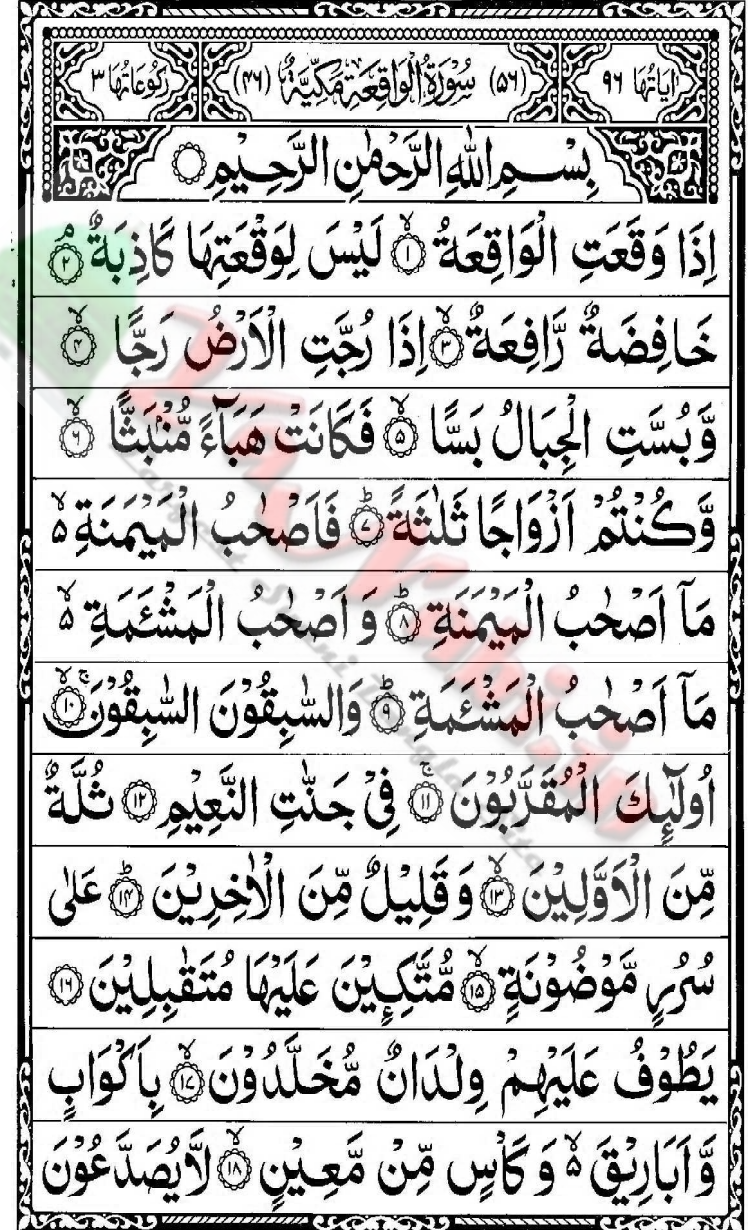 اٰیَاتُهَا ۹۶ (۵۶) سُوْرَةُ الْوَاقِعَةِ مَكِّیَّةٌ (۴۶) رُكُوْعَاتُهَا ۳
بِسْمِ اللّٰهِ الرَّحْمٰنِ الرَّحِیْمِ ○
اِذَا وَقَعَتِ الْوَاقِعَةُ ۙ﴿۱﴾ لَیْسَ لِوَقْعَتِهَا كَاذِبَةٌ ۘ﴿۲﴾
خَافِضَةٌ رَّافِعَةٌ ۙ﴿۳﴾ اِذَا رُجَّتِ الْاَرْضُ رَجًّا ۙ﴿۴﴾
وَّ بُسَّتِ الْجِبَالُ بَسًّا ۙ﴿۵﴾ فَكَانَتْ هَبَآءً مُّنْۢبَثًّا ۙ﴿۶﴾
وَّ كُنْتُمْ اَزْوَاجًا ثَلٰثَةً ؕ﴿۷﴾ فَاَصْحٰبُ الْمَیْمَنَةِ ۙ۬
مَاۤ اَصْحٰبُ الْمَیْمَنَةِ ؕ﴿۸﴾ وَ اَصْحٰبُ الْمَشْـَٔمَةِ ۙ۬
مَاۤ اَصْحٰبُ الْمَشْـَٔمَةِ ؕ﴿۹﴾ وَ السّٰبِقُوْنَ السّٰبِقُوْنَ ۚۙ﴿۱۰﴾
اُولٰٓىِٕكَ الْمُقَرَّبُوْنَ ۚ﴿۱۱﴾ فِیْ جَنّٰتِ النَّعِیْمِ ﴿۱۲﴾ ثُلَّةٌ
مِّنَ الْاَوَّلِیْنَ ۙ﴿۱۳﴾ وَ قَلِیْلٌ مِّنَ الْاٰخِرِیْنَ ؕ﴿۱۴﴾ عَلٰی
سُرُرٍ مَّوْضُوْنَةٍ ۙ﴿۱۵﴾ مُّتَّكِـِٕیْنَ عَلَیْهَا مُتَقٰبِلِیْنَ ﴿۱۶﴾
یَطُوْفُ عَلَیْهِمْ وِلْدَانٌ مُّخَلَّدُوْنَ ۙ﴿۱۷﴾ بِاَكْوَابٍ
وَّ اَبَارِیْقَ ۙ۬ وَ كَاْسٍ مِّنْ مَّعِیْنٍ ۙ﴿۱۸﴾ لَّا یُصَدَّعُوْنَ